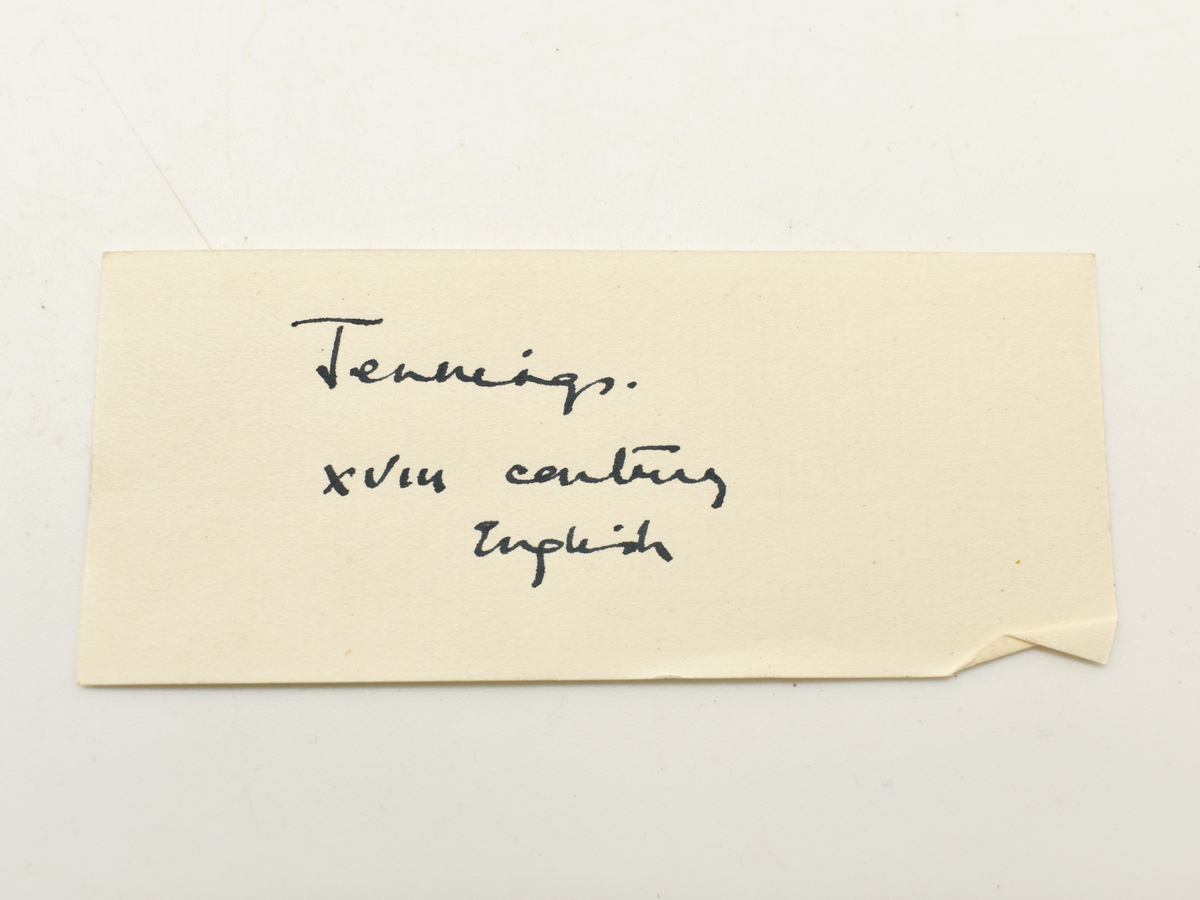 Jennings.
XVIII century
English